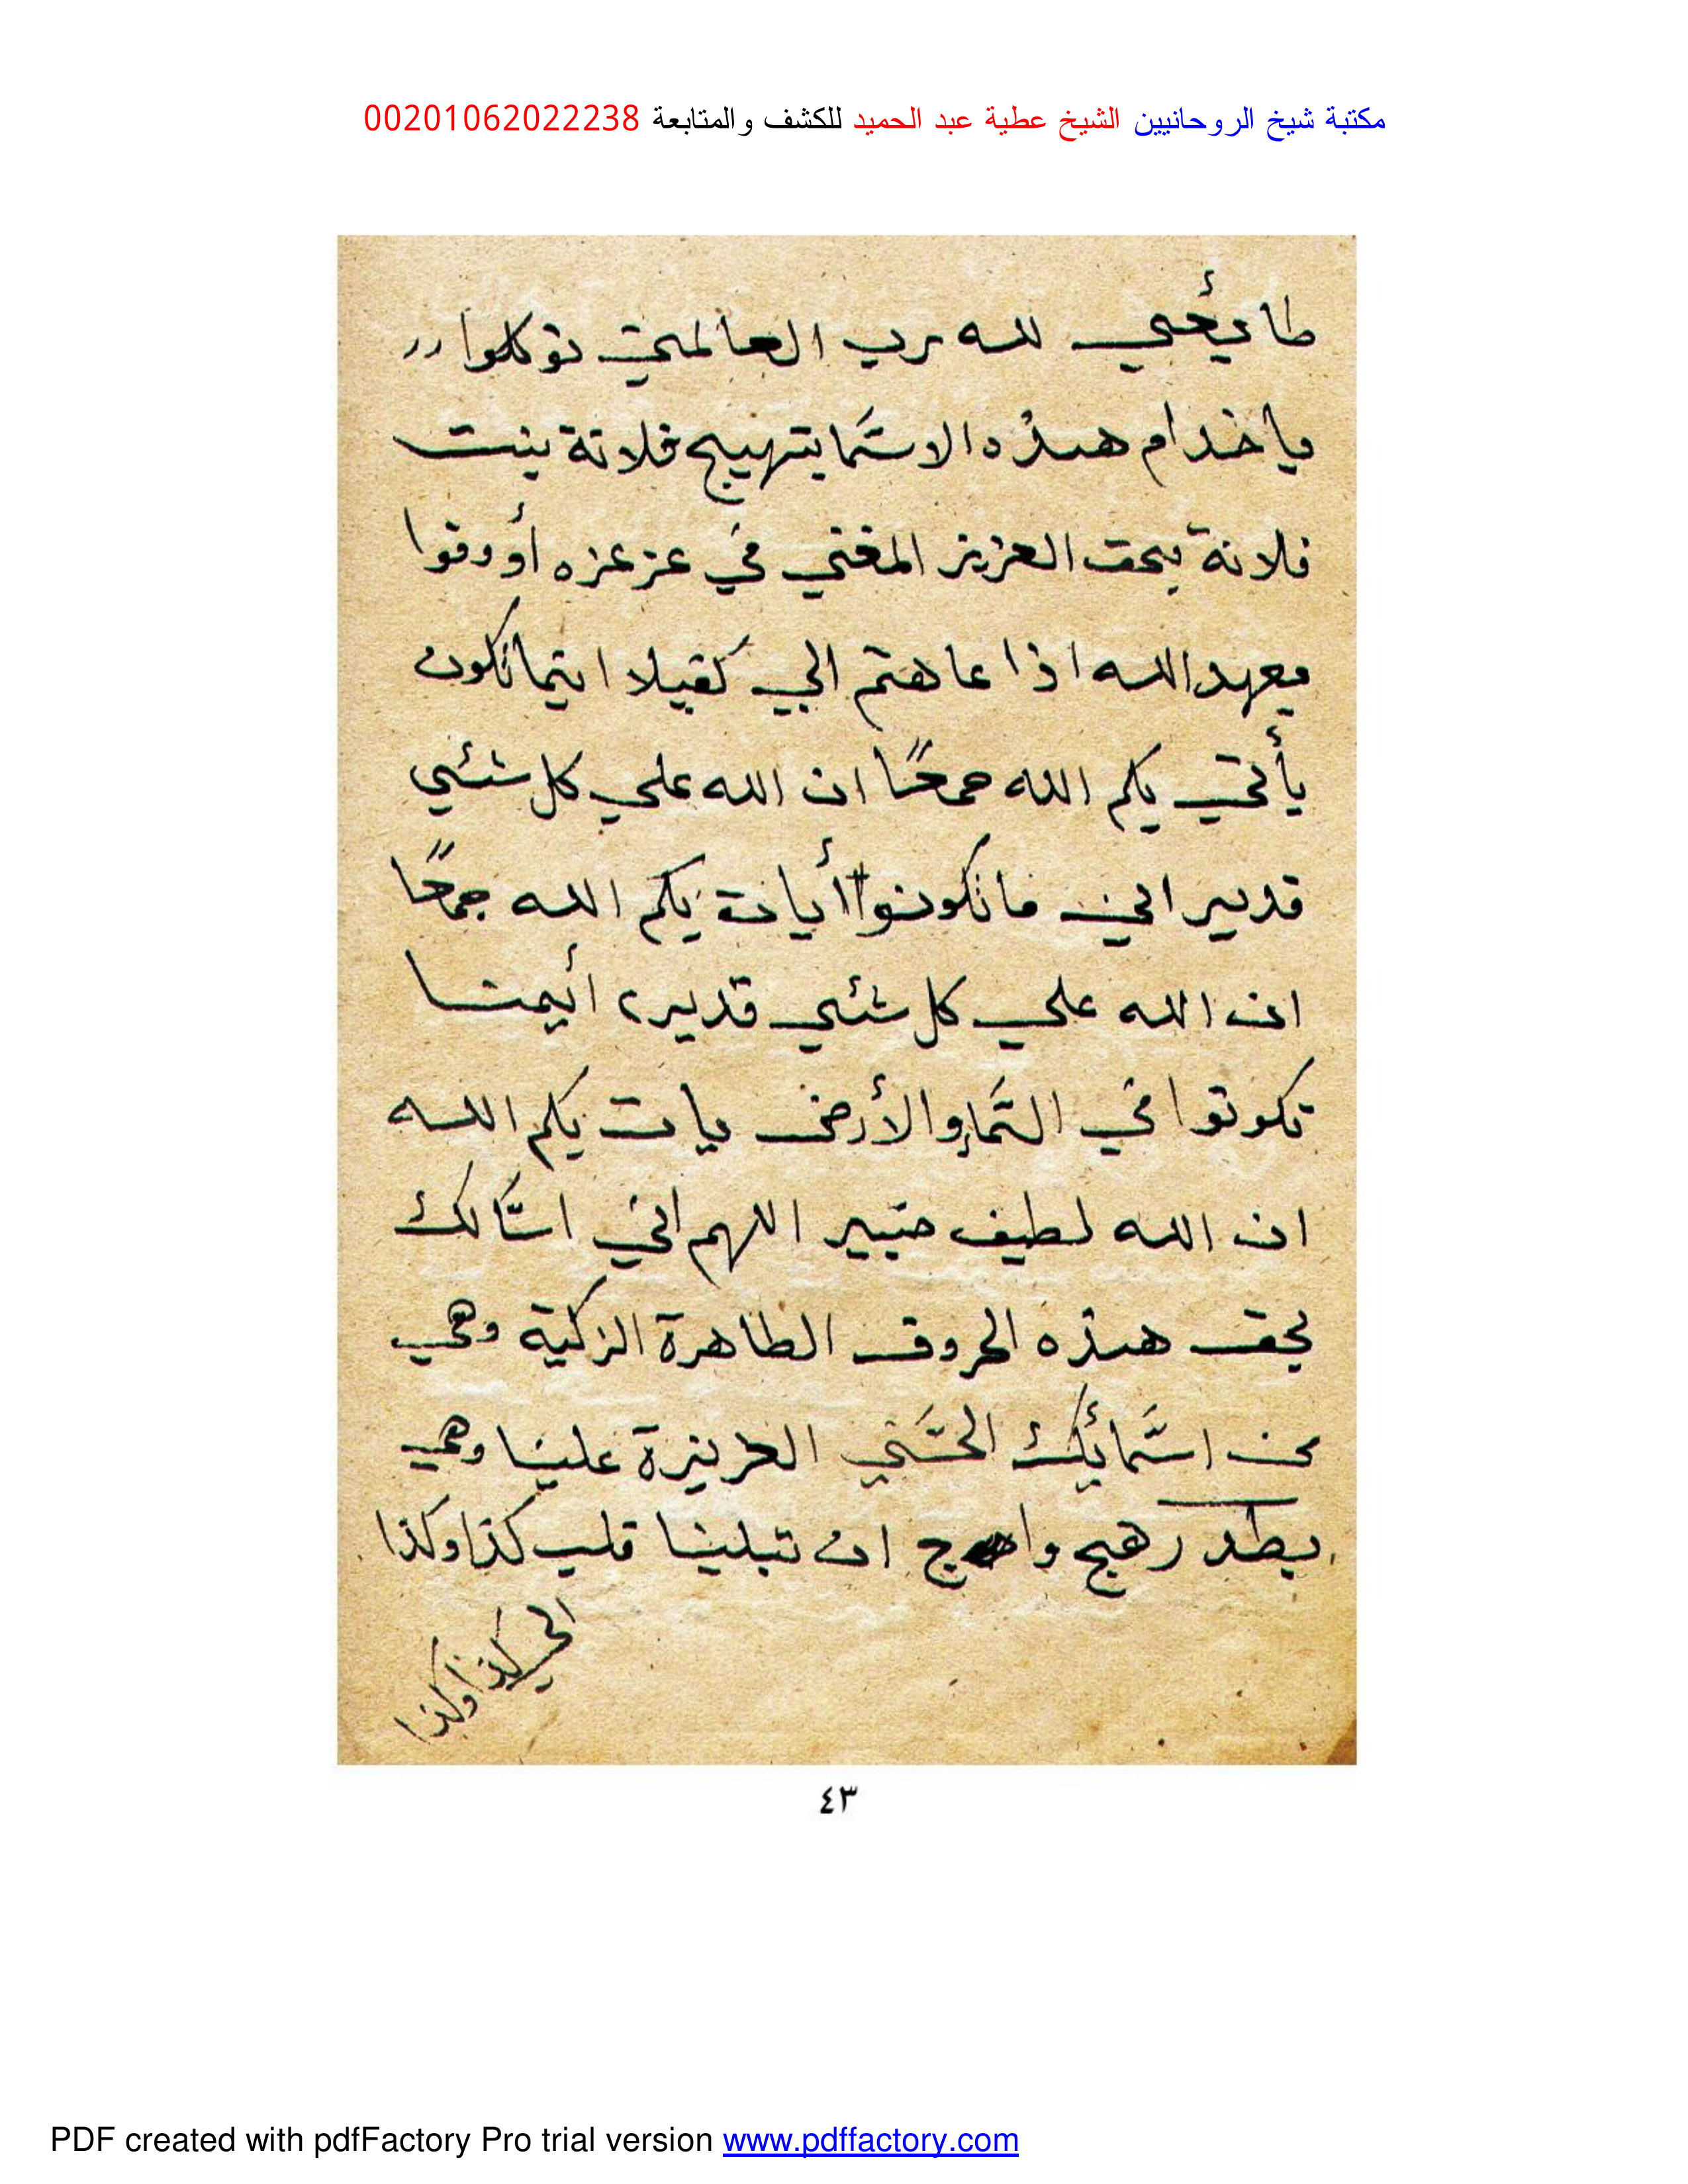 مكتبة شيخ الروحانيين الشيخ عطية عبد الحميد للكشف والمتابعة 00201062022238
طايعي لله رب العالمين توكلوا
ياخدام هذه الاسما بتهييج فلانة بنت
فلانة بحق العزيز المغني في عز عزه أووفوا
بعهد الله اذا عاهتم الي كفيلا اينما تكون
يأتي بكم الله جمعًا ان الله علي كل شئي
قدير اين ما تكونوا أيات بكم الله جمعًا
ان الله علي كل شئي قدير أيمنا
تكونوا في السما والأرض يات بكم الله
ان الله لطيف خبير اللهم اني اسالك
بحق هذه الحروف الطاهرة الزكية وهي
من اسمائك الحسني العزيزة علينا وهي
بطد زهج واح ان تبلينا قلب كذا وكذا
الي كذا وكذا
٤٣
PDF created with pdfFactory Pro trial version www.pdffactory.com